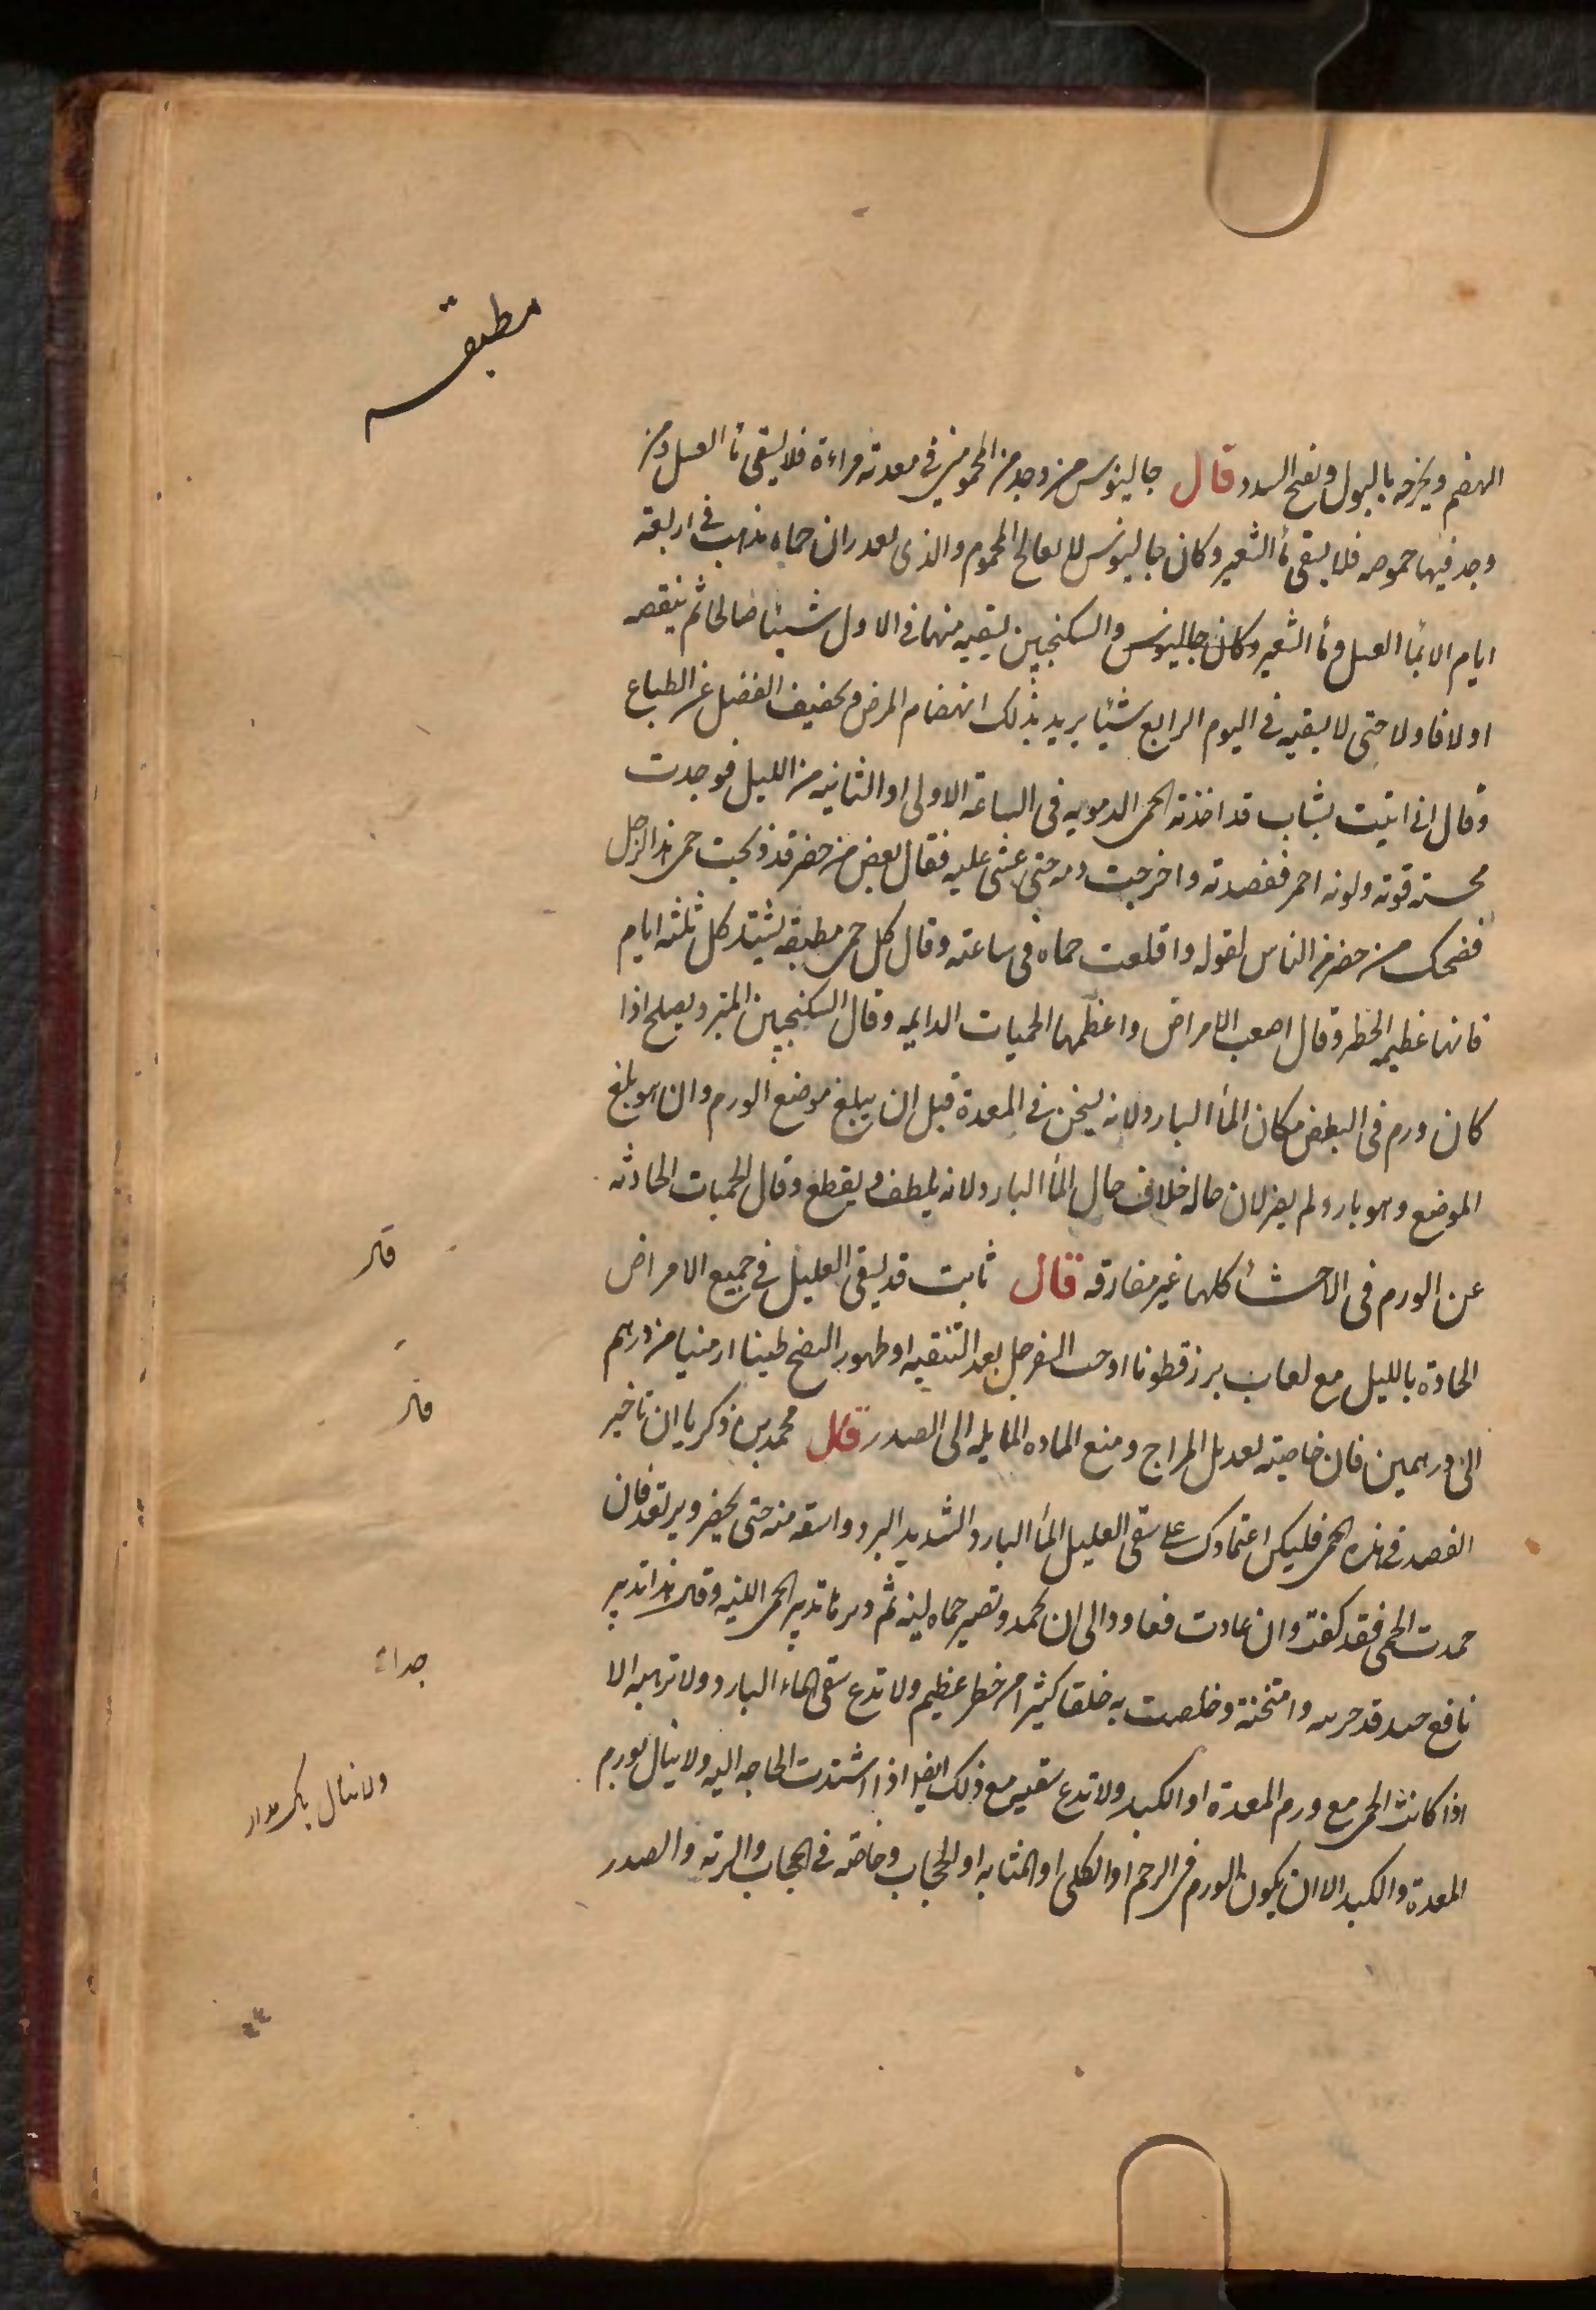 مطبقه
الهضم ويخرجه بالبول ويفتح السدد قال جالينوس من وجد من المحمومين في معدته مراءة فلا يسقى مأ العسل ومن
وجد فيها حموضه فلا يسقى مأ الشعير وكان جالينوس لا يعالج المحموم والذى يقدر ان حماه تذهب في اربعة
ايام الا بمأ العسل ومأ الشعير وكان جالينوس والسكنجبين يسقيه منهما في الاول شيئا صالحا ثم ينقصه
اولا فاولا حتى لا يسقيه في اليوم الرابع شيئا يريد بذلك انهضام المرض وتخفيف الفضل عن الطباع
وقال انى اتيت بشاب قد اخذته الحمى الدمويه فى الساعة الاولى او الثانيه من الليل فوجدت
محسته قوته ولونه احمر ففصدته واخرجت دمه حتى غشى عليه فقال بعض من حضر قد ذبحت حمى هذا الرجل
فضحك من حضر من الناس لقوله واقلعت حماه فى ساعته وقال كل حمى مطبقه يشتد كل ثلثه ايام
فانها عظيم الخطر وقال اصعب الامراض واعظمها الحميات الدايمه وقال السكنجبين المبرد يصلح اذا
كان ورم فى البطن مكان المأ البارد ولانه يسخن في المعدة قبل ان يبلغ موضع الورم وان هو بلغ
الموضع وهو بارد لم يضر لان حاله خلاف حال المأ البارد لانه يلطف و يقطع وقال الحميات الحادثه
عن الورم فى الاحشأ كلها غير مفارقه قال ثابت قد يسقى العليل في جميع الامراض
الحادة بالليل مع لعاب بزر قطونا او حب السفرجل بعد التنقيه او ظهور النضج طينا ارمنيا من درهم
الى درهمين فان خاصيته تعديل المزاج ومنع الماده المايله الى الصدر قال محمد بن زكريا ان تاخير
الفصد في هذه الحمى فليكن اعتمادك على سقى العليل المأ البارد الشديد البرد واسقه منه حتى يخضر ويرتعد فان
خمدت الحمى فقد كفت وان عادت فعاود الى ان تخمد وتصير حماه لينه ثم دبره تدبير الحمى اللينه وقال هذا تدبير
نافع جيد قد جربته وامتحنته وخلصت به خلقا كثيرا من خطر عظيم ولا تدع سقى الماء البارد ولا ترهبه الا
اذا كانت الحمى مع ورم المعدة او الكبد ولا تدع سقيه مع ذلك ايضا اذا اشتدت الحاجه اليه ولا يبال بورم
المعدة والكبد الا ان يكون الورم في الرحم او الكلى او المثانه او الحجاب وخاصة في الحجاب والريه والصدر
قال
قال
جداء
ولا تبال